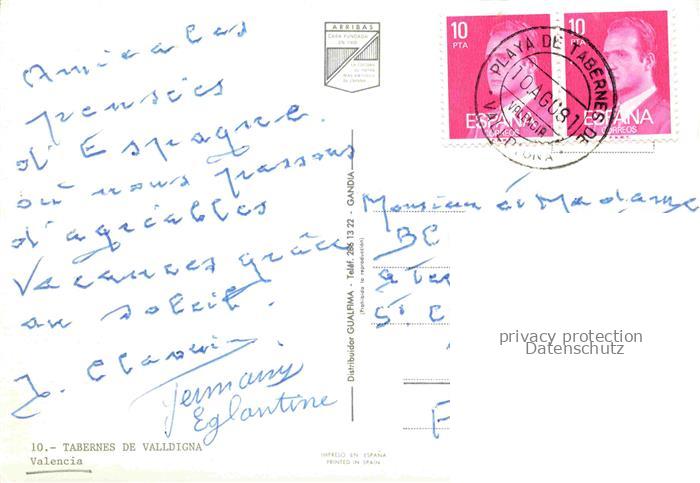 Amicales
pensées
d'Espagne.
où nous passons
d'agréables
vacances grâce
au soleil.
Eglantine
10.- TABERNES DE VALLDIGNA
Valencia
ARRIBAS
CASA FUNDADA
EN 1905
Distribuidor GUALFIMA - Teléf. 286 13 22 - GANDIA
(Prohibida la reproducción)
IMPRESO EN ESPAÑA
PRINTED IN SPAIN
10
PTA
ESPAÑA
CORREOS
10
PTA
ESPAÑA
CORREOS
PLAYA DE TABERNES DE VALLDIGNA
10 AGO 81
VALENCIA
Monsieur et Madame
privacy protection
Datenschutz